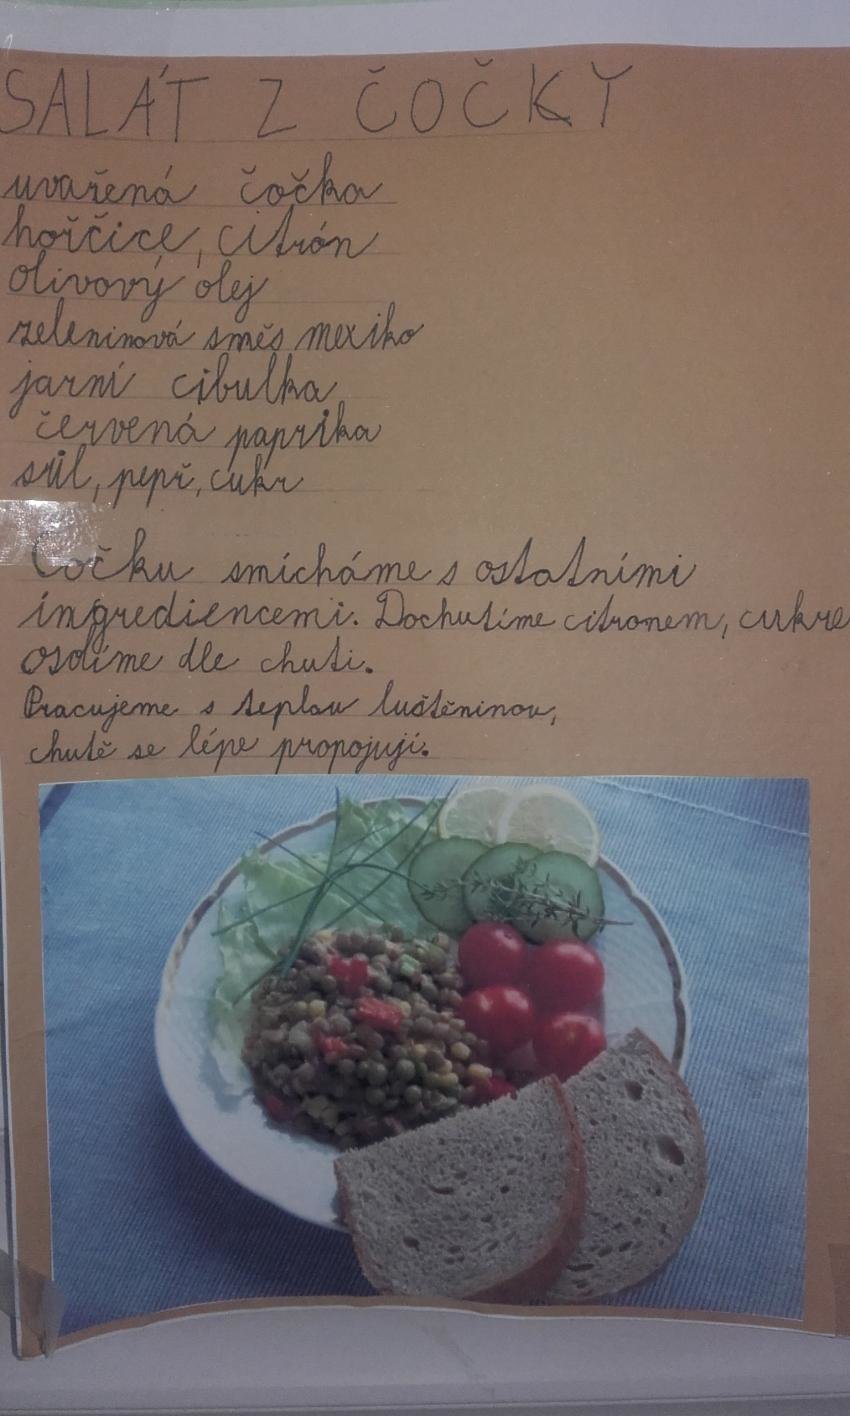 SALÁT Z ČOČKY
uvařená čočka
hořčice, citrón
olivový olej
zeleninová směs mexiko
jarní cibulka
červená paprika
sůl, pepř, cukr
Čočku smícháme s ostatními
ingrediencemi. Dochutíme citronem, cukre
osolíme dle chuti.
Pracujeme s teplou luštěninou,
chutě se lépe propojují.